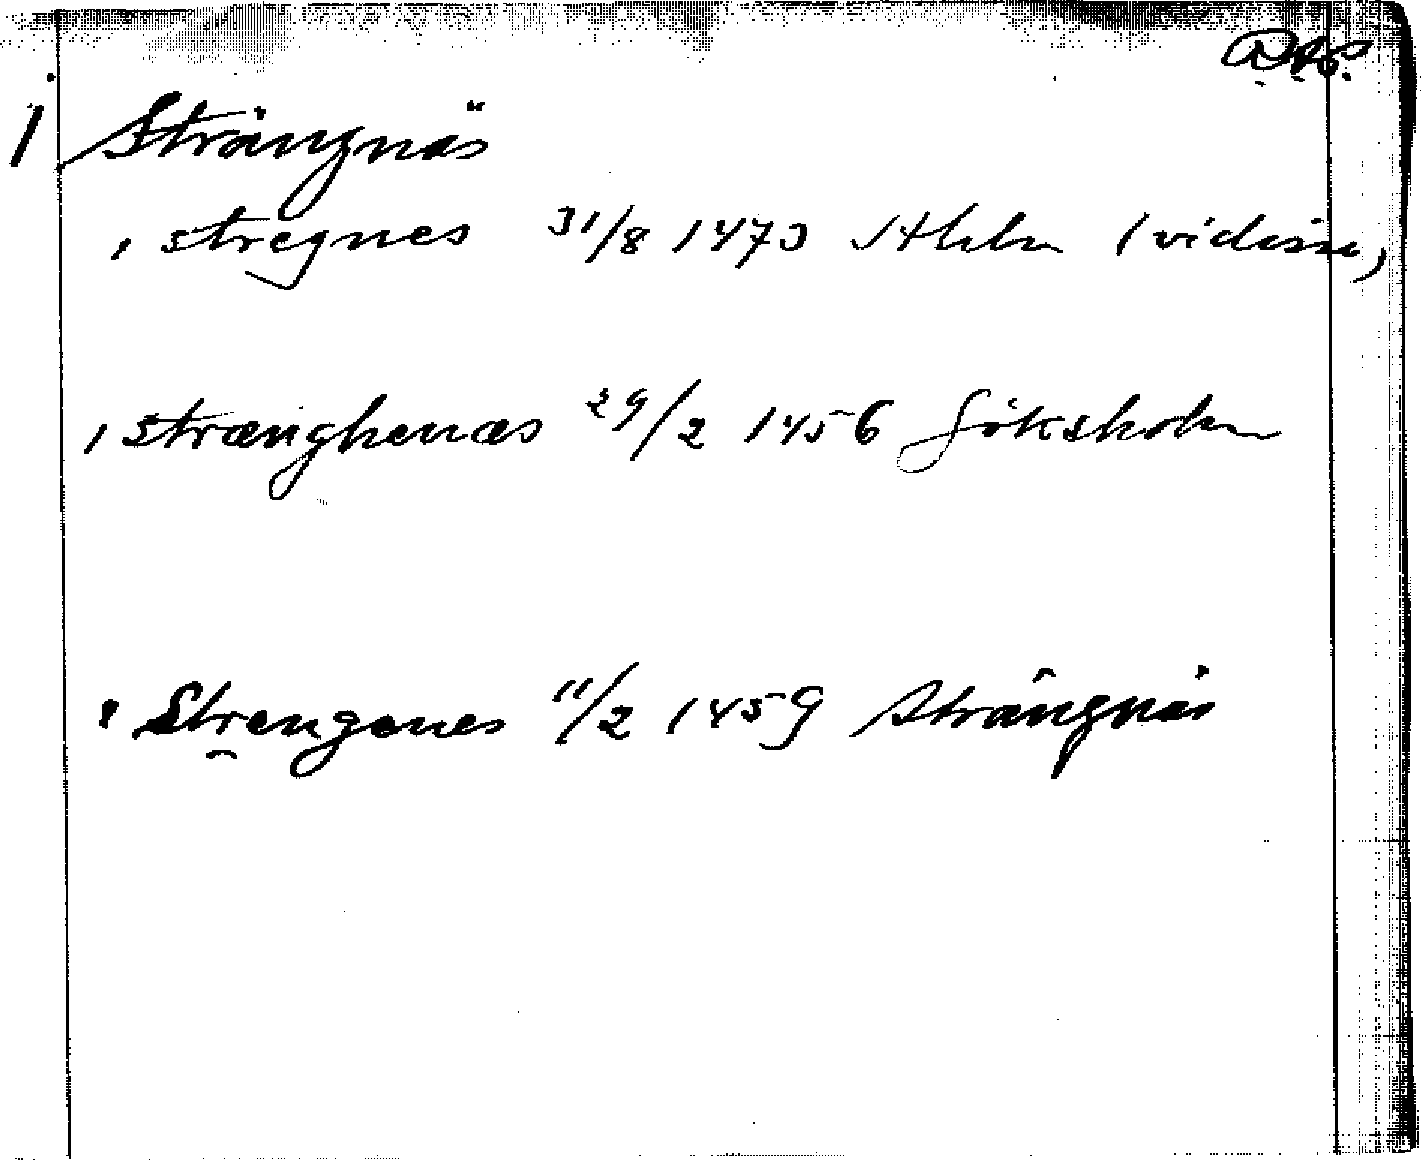 i Strängnäs
i stregnes 31/8 1473 Sthlm (vidisse)
i strænghenæs 29/2 1456 Göksholm
i Strengenes 11/2 1459 Strängnäs